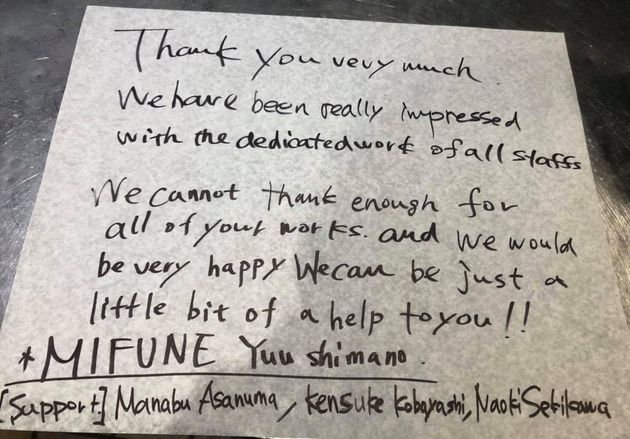 Thank you very much.
We have been really impressed
with the dedicated work of all staffs
We cannot thank enough for
all of your works. and we would
be very happy We can be just a
little bit of a help to you!!
*MIFUNE Yuu shimano.
[Support] Manabu Asanuma, Kensuke Kobayashi, Naoki Sekikawa